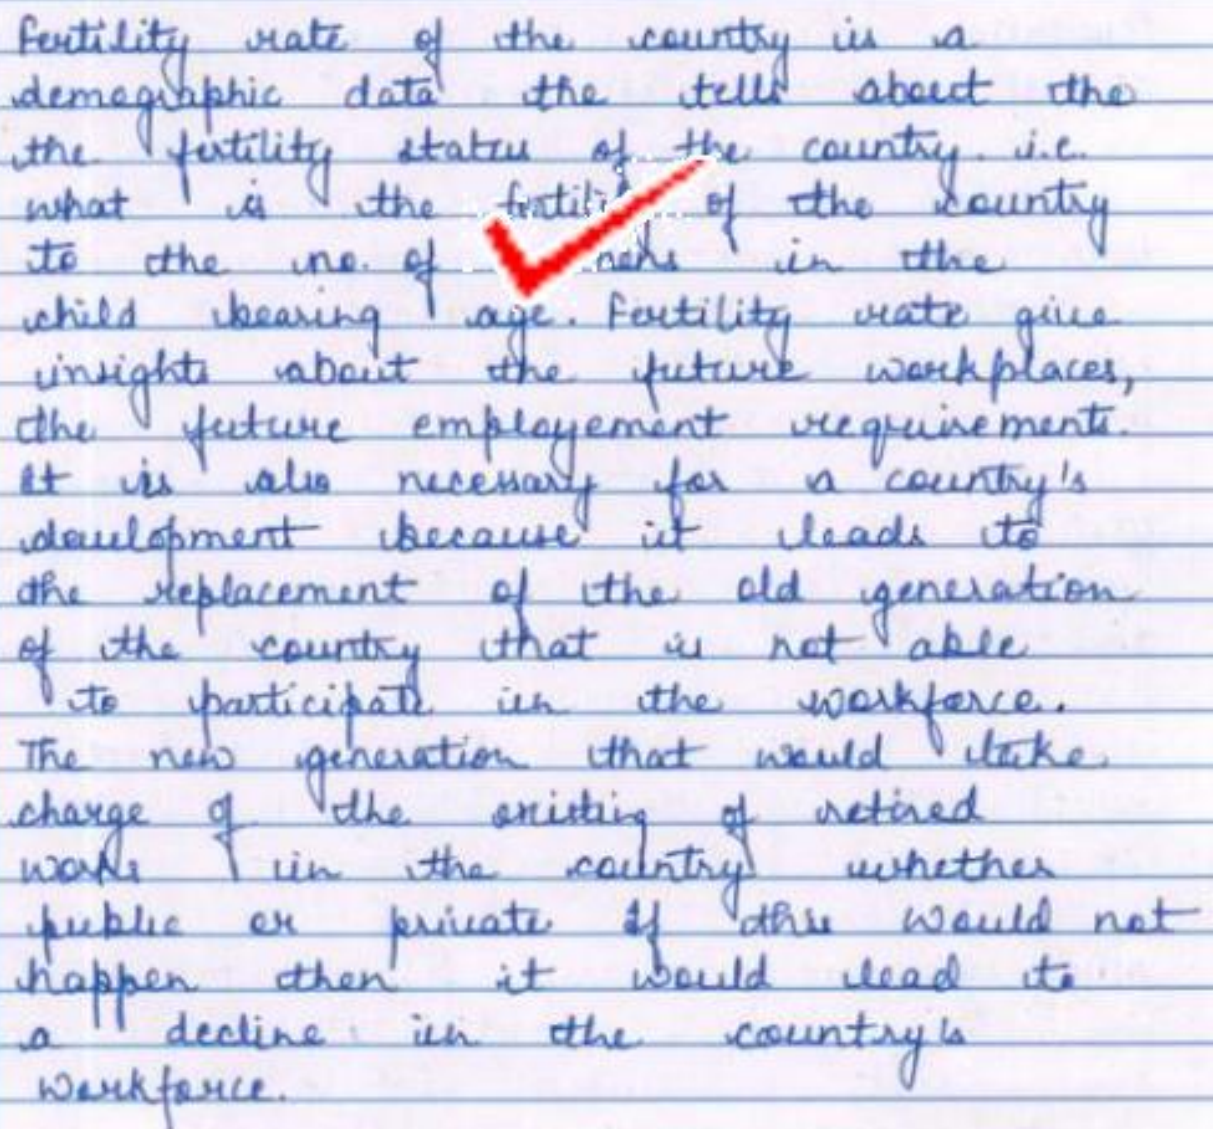 Fertility rate of the country is a
demographic data the tells about the
the fertility status of the country. i.e.
what is the of the country
to the no. of in the
child bearing age. Fertility rate give
insights about the future workplaces,
the future employement requirements.
It is also necessary for a country's
development because it leads to
the replacement of the old generation
of the country that is not able
to participate in the workforce.
The new generation that would take
charge of the existing of retired
works in the country whether
public or private If this would not
happen then it would lead to
a decline in the country's
workforce.